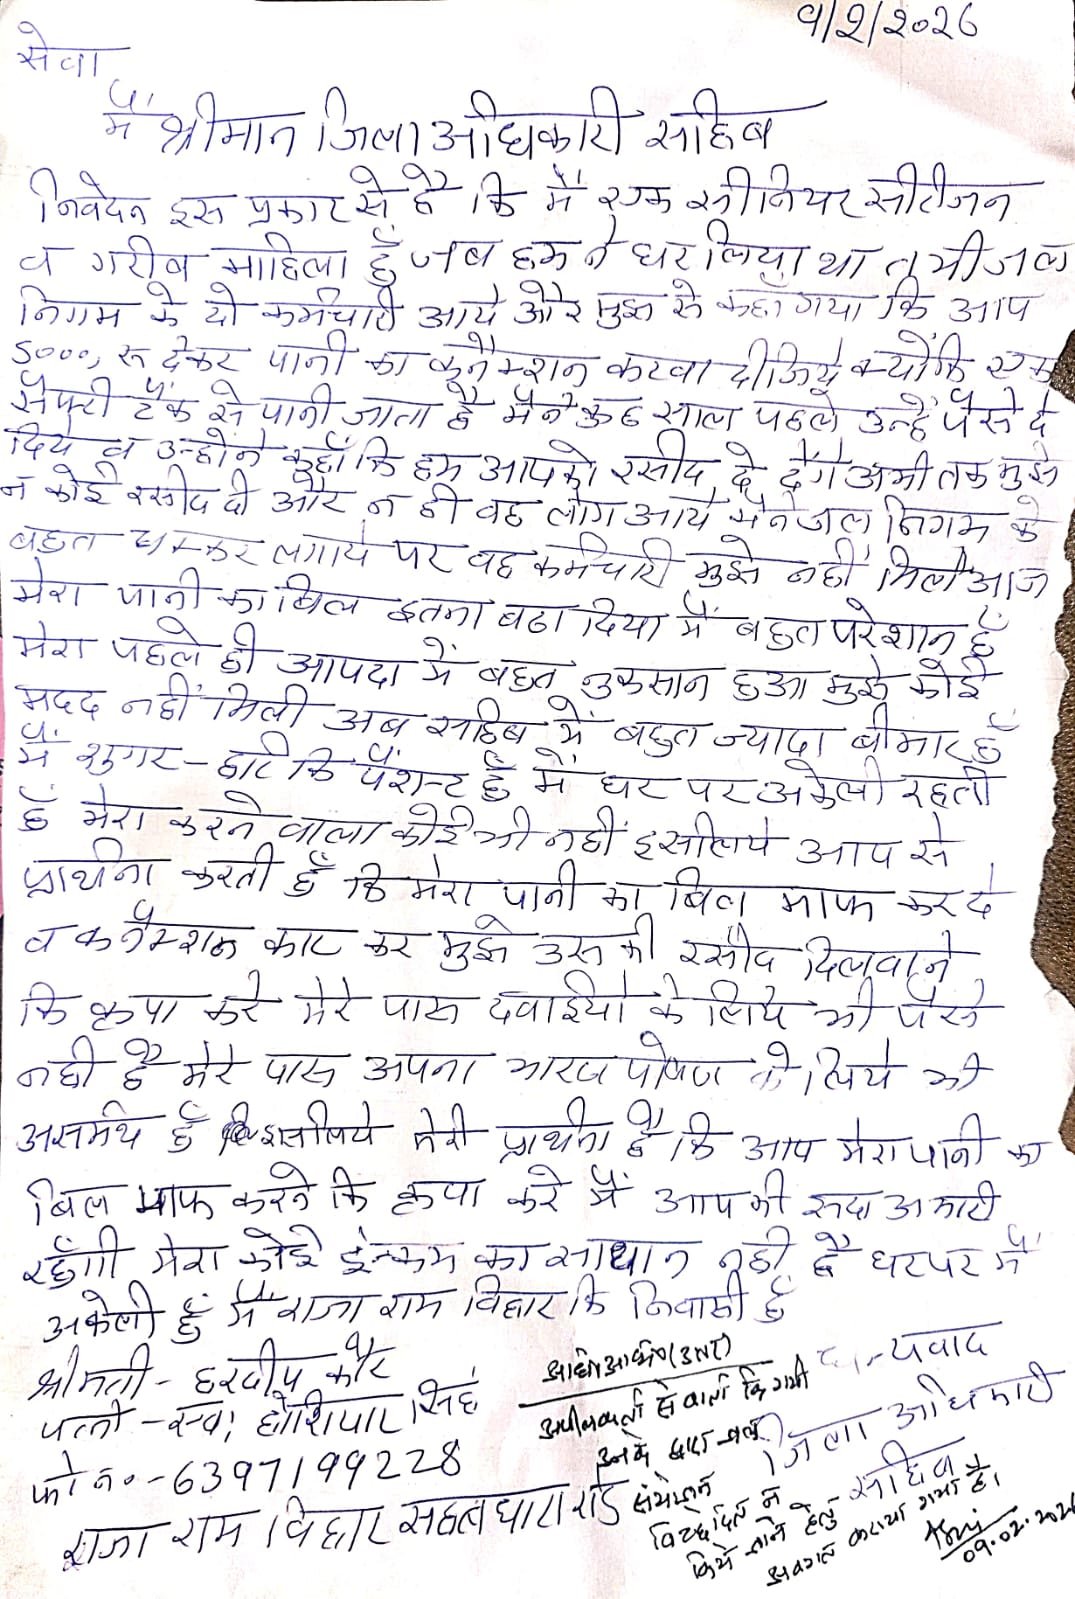 9/2/2026
सेवा
में श्रीमान जिला अधिकारी साहिब
निवेदन इस प्रकार से है कि मैं एक सीनियर सीटीजन
व गरीब माहिला हूँ जब हम ने घर लिया था तभी जल
निगम के दो कर्मचारी आये और मुझ से कहाँ गया कि आप
5000, रू देकर पानी का कनैक्शन करवा दीजिये क्योंकि एक
सैफ्टी टैंक से पानी जाता है मैने कुछ साल पहले उन्हें पैसे दे
दिये व उन्होंने कहाँ कि हम आपको रसीद दे देंगे अभी तक मुझे
न कोई रसीद दी और न ही वह लोग आये मैने जल निगम के
बहुत चक्कर लगाये पर वह कर्मचारी मुझे नहीं मिले आज
मेरा पानी का बिल इतना बढा दिया मैं बहुत परेशान हूँ
मेरा पहले ही आपदा में बहुत नुकसान हुआ मुझे कोई
मदद नहीं मिली अब साहिब में बहुत ज्यादा बीमार हूँ
मैं शुगर - हार्ट कि पैशन्ट हूँ में घर पर अकेली रहती
हूँ मेरा करने वाला कोई भी नहीं इसलिये आप से
प्रार्थना करती हूँ कि मेरा पानी का बिल माफ कर दे
व कनैक्शन काट कर मुझे उस की रसीद दिलवाने
कि कृपा करे मेरे पास दवाईयो के लिये भी पैसे
नही है मेरे पास अपना भारण पोषण के लिये भी
असर्मथ हूँ इसलिये मेरी प्रार्थना है कि आप मेरा पानी का
बिल माफ करने कि कृपा करे मैं आप की सदा अभारी
रहूँगी मेरा कोई इन्कम का साधान नही है घर पर मैं
अकेली हूँ मैं राजा राम विहार कि निवासी हूँ
श्रीमती - हरदीप कौर
पत्नी - स्व; होशियार सिंह
फो न० - 6397199228
राजा राम विहार सहस्त्रधारा रोड
धन्यवाद
जिला अधिकारी
साहिब
अधि० अभि० (उत्तर)
अपीलकर्ता से वार्ता कि गयी
उनके द्वारा जल
संयोजन
विच्छेदित न
किये जाने हेतु
अवगत कराया गया है।
09.02.2026